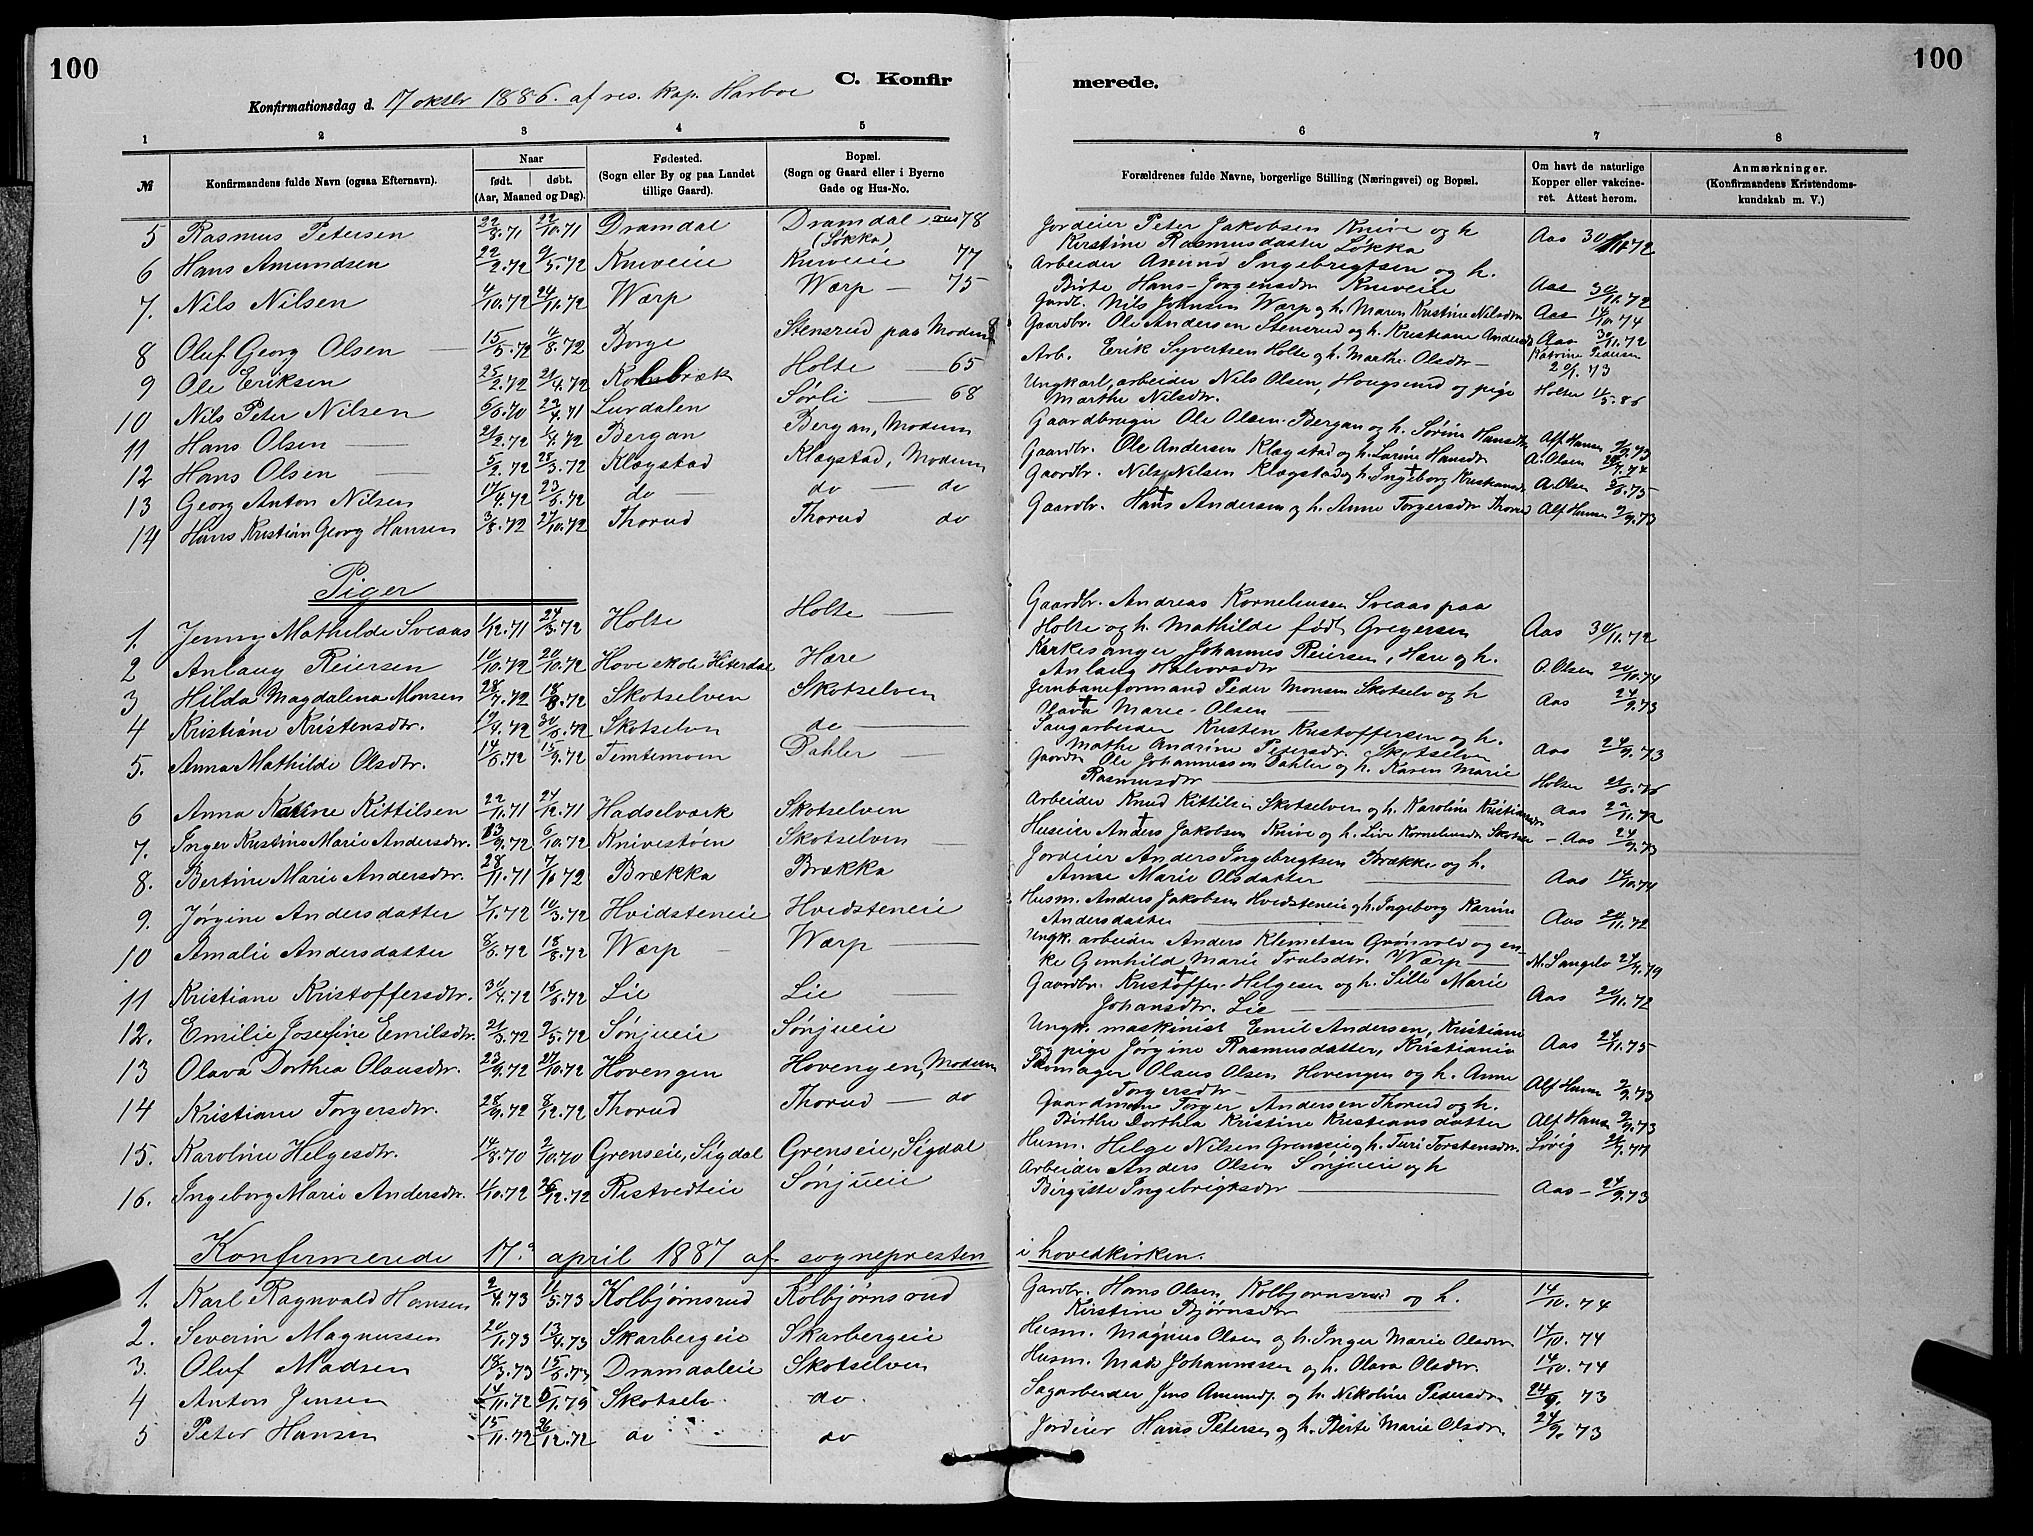 100
C. Konfir merede.
100
Konfirmationsdag d. 17 oktbr 1886. af res. kap. Harboe
1 2 3 4 5 6 7 8
№
Konfirmandens fulde Navn (ogsaa Efternavn).
Naar
født. døbt.
(Aar, Maaned og Dag).
Fødested.
(Sogn eller By og paa Landet tillige Gaard).
Bopæl.
(Sogn og Gaard eller i Byerne Gade og Hus-No.
Forældrenes fulde Navne, borgerlige Stilling (Næringsvei) og Bopæl.
Om havt de naturlige Kopper eller vakcineret. Attest herom.
Anmærkninger.
(Konfirmandens Kristendomskundskab m. V.)
5 Rasmus Petersen 22/8.71 22/10.71 Dramdal Dramdal 78 (Løkka) Jordeier Peter Jakobsen Knive og h Kerstine Rasmusdatter Løkka Aas 30/11.72
6 Hans Amundsen 22/2.72 9/5.72 Kniveie Kniveie 77 Arbeider Amund Ingebrigtsen og h. Birte Hans-Jørgensdtr Kniveie Aas 30/11.72
7. Nils Nilsen 4/10.72 24/11.72 Wærp Wærp – 75 Gardb. Nils Johnsen Wærp og h. Maren Kristine Nilsdtr Aas 14/10.74
8 Oluf Georg Olsen 15/5.72 4/8.72 Borge Stensrud paa Modum Gaardbr. Ole Andersen Stensrud og h. Kristiane Andersdtr Aas 30/11.72
9 Ole Eriksen 25/2.72 21/4.72 Holte 65 Arb. Erik Syvertsen Holte og h. Marthe Olsdtr – Katrine Pedersen 20/.73
10 Nils Peter Nilsen 6/6.70 23/4.71 Lurdalen Sørli 68 Ungkarl, arbeider Nils Olsen, Hougsund og pige Marthe Nilsdtr. Holter 11/5.86
11 Hans Olsen 21/2.72 1/4.72 Bergan Bergan, Modum Gaardbruger Ole Olsen Bergan og h. Sørine Hansdtr Alf Hansen 9/9.73
12 Hans Olsen 5/2.72 28/3.72 Klægstad Klægstad, Modum Gaardbr. Ole Andersen Klægstad og h. Larine Hansdtr A. Olsen 24/7.74
13 Georg Anton Nilsen 17/4.72 23/6.72 do – do – do Gaardbr. Nils Nilsen Klægstad og h. Ingeborg Kristiansdtr A. Olsen 2/6.75
14 Hans Kristian Georg Hansen 3/8.72 27/10.72 Thorud Thorud do Gaardbr. Hans Andersen og h. Anne Torgersdtr Thorud Alf Hansen 9/9.73
Piger
1. Jenny Mathilde Sveaas 1/12.71 24/3.72 Holte Holte Gaardbr. Andreas Kornelinsen Sveaas paa Holte og h. Mathilde født Gregersen Aas 30/11.72
2 Anlaug Reiersen 10/10.72 20/10.72 Hove skole Hiterdal Hære Kirkesanger Johannes Reiersen, Hære og h. Anlaug Halvorsdtr O. Olsen 20/10.74
3 Hilda Magdalena Monsen 28/7.72 18/8.72 Skotselven Skotselven Jernbaneformand Peder Monsen Skotselv og h Olava Marie Olsen Aas 24/9.73
4 Kristiane Kristensdtr. 19/4.72 30/6.72 Skotselven do Saugarbeider Kristen Kristoffersen og h. Mathe Andrine Petersdtr. Skotselven Aas 24/9.73
5. Anna Mathilde Olsdtr. 14/6.72 15/9.72 Temtemoen Dahler Gaardbr Ole Johannessen Dahler og h. Karen Marie Rasmusdtr Holter 21/6.76
6 Anna Katrine Kittilsen 22/11.71 24/12.71 Hadselværk Skotselven Arbeider Knud Kittilsen Skotselven og h. Karoline Kristiansdtr Aas 22/11.72
7. Inger Kristine Marie Andersdtr. 13/9.72 6/10.72 Knivestøen Skotselven Huseier Anders Jakobsen Knive og h. Live Kornelinsdtr Skotselv – Aas 24/9.73
8. Bertine Marie Andersdtr. 28/11.71 7/1.72 Brækka Brækka Jordeier Anders Ingebrigtsen Brække og h. Anne Marie Olsdatter Aas 14/10.74
9. Jørgine Andersdatter 7/1.72 10/3.72 Hvidsteneie Hvidsteneie Husm. Anders Jakobsen Hvidsteneie og h. Ingeborg Karine Andersdatter Aas 24/11.72
10 Amalie Andersdatter 8/6.72 18/8.72 Wærp Wærp Ungk. arbeider Anders Klemetsen Grønvold og enke Gunhild Marie Trulsdtr. Wærp 24/9.79
11 Kristiane Kristoffersdtr. 30/4.72 16/6.72 Lie Lie Gaardbr. Kristoffer Helgesen og h. Sille Marie Johansdtr. Lie Aas 20/11.72
12. Emilie Josefine Emilsdtr. 21/3.72 9/5.72 Sønjueie Sønjueie Ungk. maskinist Emil Andersen, Kristiania og pige Jørgine Rasmusdatter, Kristiania Aas 24/11.75
13 Olava Dorthea Olausdtr. 23/9.72 27/10.72 Hovengen Hovengen, Modum Skomager Olaus Olsen Hovengen og h. Anne Torgersdtr Alf Hansen 9/9.73
14 Kristiane Torgersdtr. 28/9.72 8/12.72 Thorud Thorud – do Gaardmand Torger Andersen Thorud og h. Birthe Dorthea Kristine Kristiansdatter Alf Hansen 9/9.73
15. Karoline Helgesdtr. 14/8.70 2/10.70 Grenseie, Sigdal Grenseie, Sigdal Husm. Helge Nilsen Grenseie og h. Turi Torstensdtr. Løvig 2/7.77
16. Ingeborg Marie Andersdtr. 11/10.72 26/12.72 Ristvedteie Sønjueie Arbeider Anders Olsen Sønjueie og h Birgitte Ingebrigtsdtr Aas – 24/9.73
Konfirmerede 17. april 1887 af sognepresten i hovedkirken.
1. Karl Ragnvald Hansen 2/4.73 11/5.73 Kolbjørnsrud Kolbjørnsrud Gardbr. Hans Olsen Kolbjørnsrud og h. Kirstine Bjørnsdtr 14/10.74
2. Severin Magnussen 20/1.73 13/4.73 Skarbergeie Skarbergeie Husm. Magnus Olsen og h. Inger Marie Olsdtr 14/10.74
3. Oluf Madsen 14/3.73 15/6.73 Dramdaleie Skotselven Husm. Mads Johannessen og h. Olava Olsdtr. 14/10.74
4 Anton Jensen 14/11.72 5/1.75 Skotselv. do. Sagarbeider Jens Amundsen og h. Nikoline Pedersdtr 24/9.73
5 Peter Hansen 15/11.72 26/12.72 do do Jordeier Hans Petersen og h. Berte Marie Olsdtr. 24/9.73